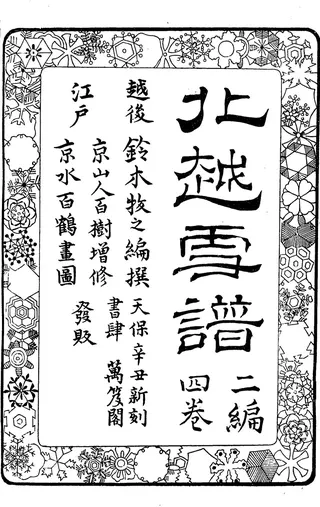 北越雪譜
二編
四巻
越後 鈴木牧之編撰
江戸 京山人百樹增修
京水百鶴畫圖
天保辛丑新刻
書肆 萬笈閣
發販